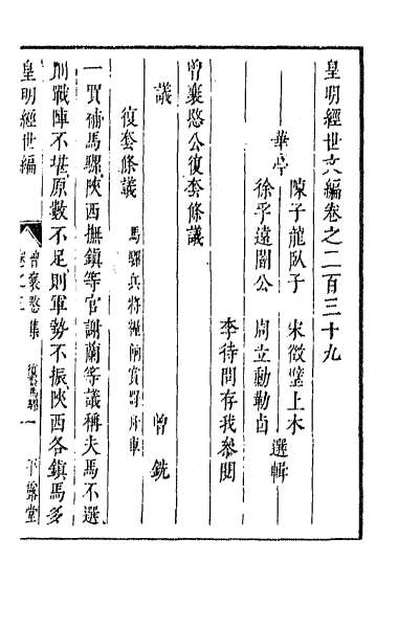 皇明經世文編卷之二百三十九
華亭
陳子龍臥子
宋徵璧上木
選輯
徐孚遠闇公
周立勳勒卣
李待問存我參閱
曾襄愍公復套條議
議
曾銑
復套條議
馬騾兵將糧餉賞罰舟車
一買補馬騾陝西撫鎮等官謝蘭等議稱夫馬不選
則戰陣不堪原數不足則軍勢不振陝西各鎮馬多
皇明經世編
曾襄愍集
卷之三
復套馬騾
一
平露堂